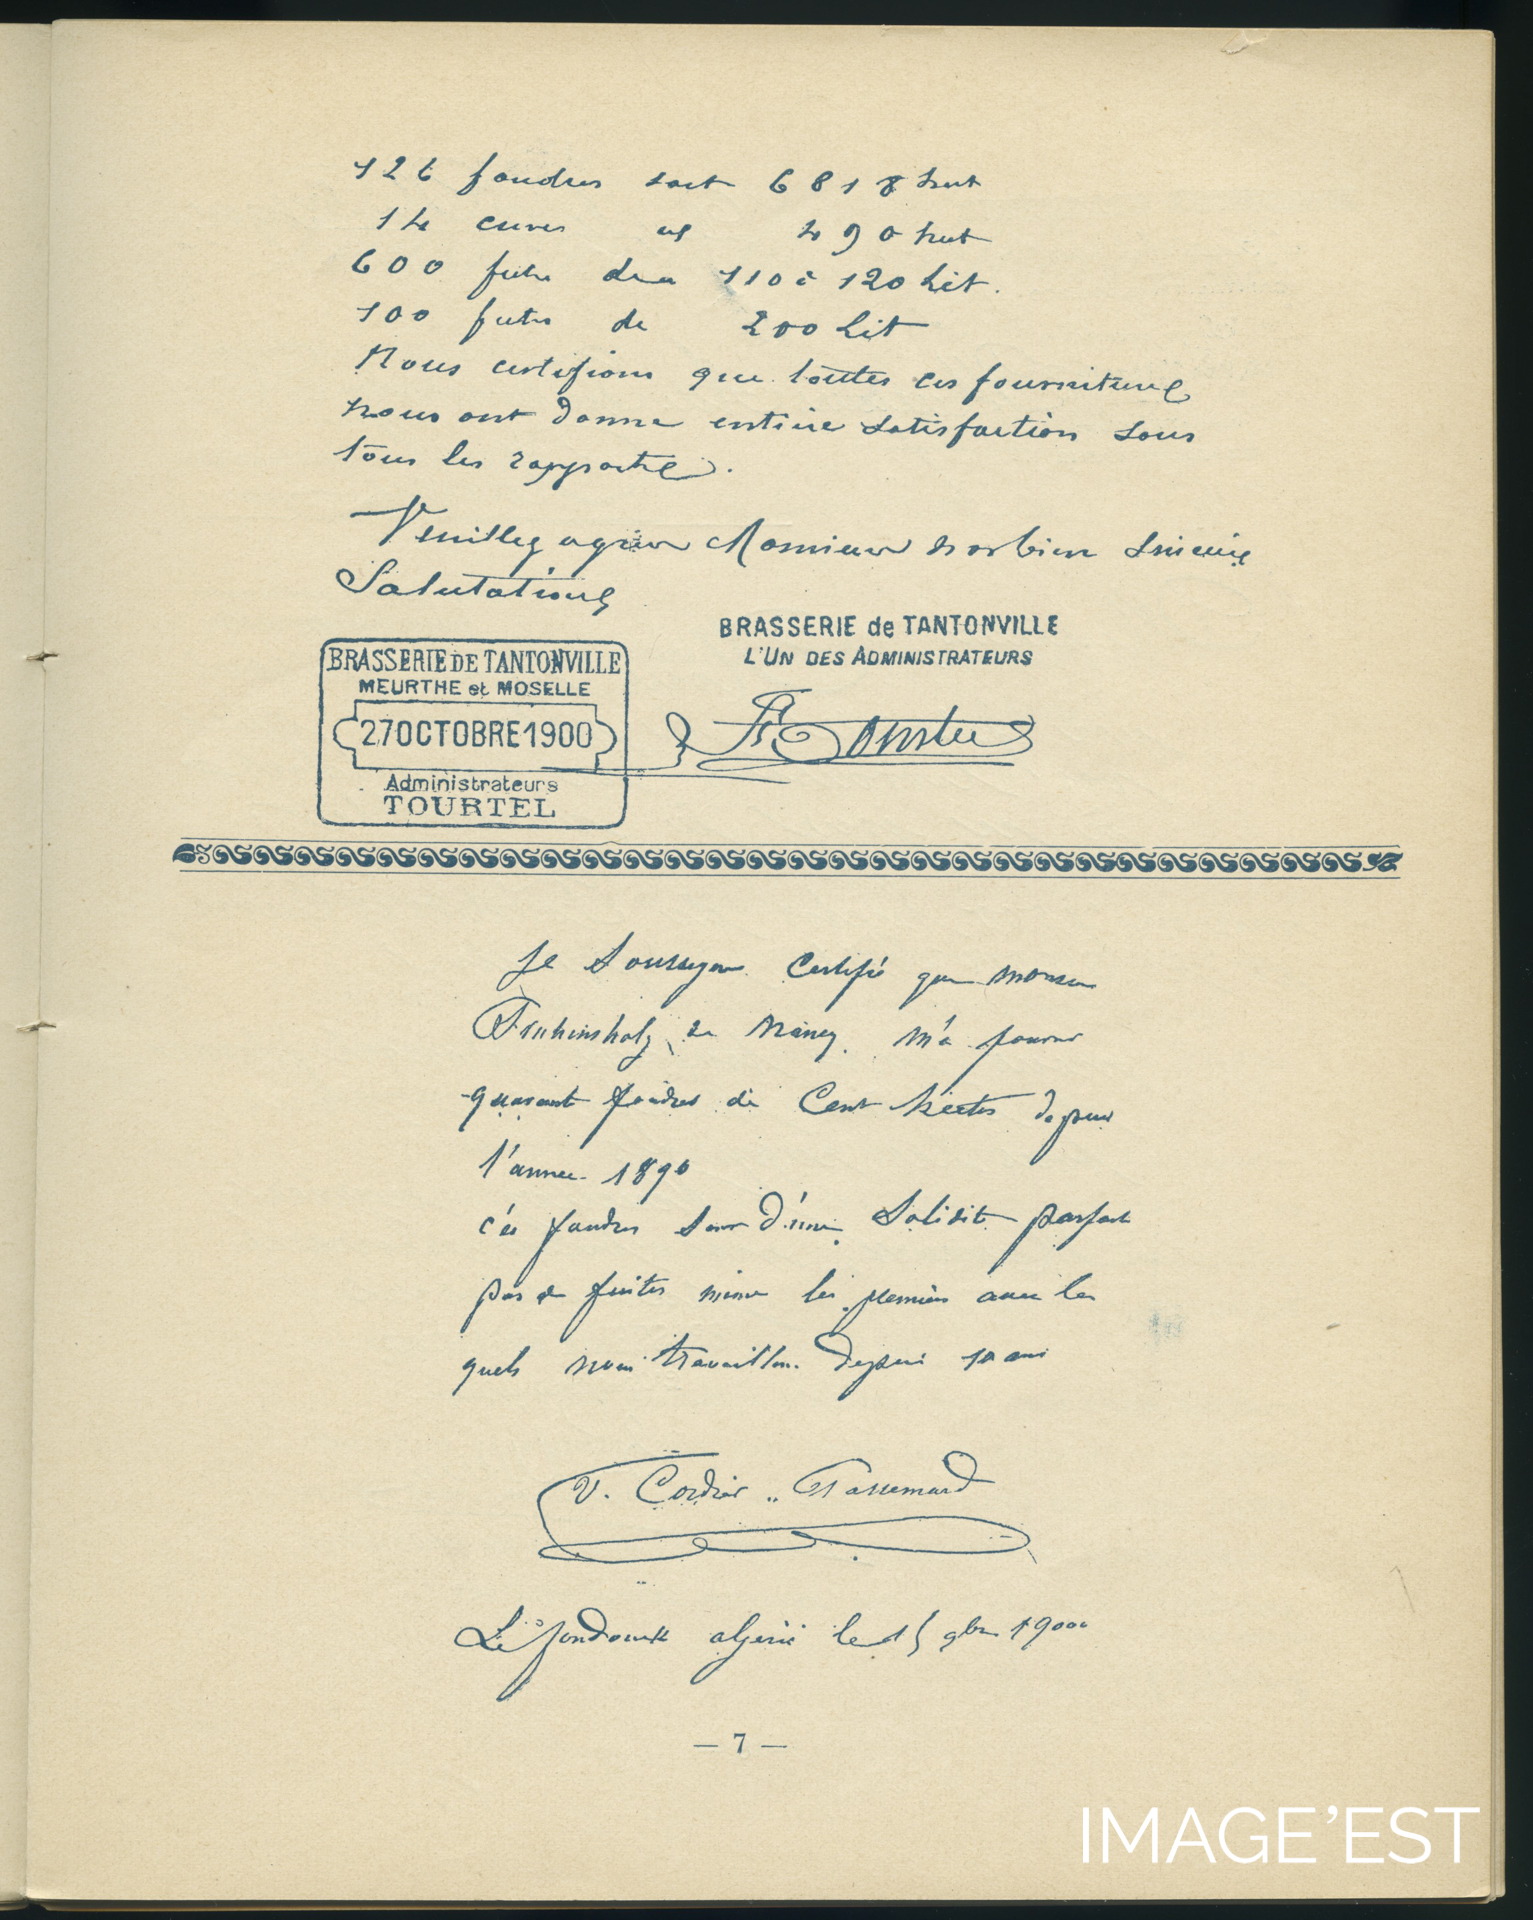 126 foudres soit 6818 hect
14 cuves 490 hect
600 futs de 110 à 120 Lit.
100 futs de 200 Lit
Nous certifions que toutes ces fournitures
nous ont donné entière satisfaction sous
tous les rapports.
Veuillez agréer Monsieur nos bien sincères
Salutations
BRASSERIE de TANTONVILLE
L'UN DES ADMINISTRATEURS
BRASSERIE DE TANTONVILLE
MEURTHE et MOSELLE
27 OCTOBRE 1900
Administrateurs
TOURTEL
Je Soussigne Certifié que monsieur
Fruhinsholz de Nancy m'a fourni
quarante foudres de Cent hectos depuis
l'année 1890
Ces foudres sont d'une Solidité parfait
pas de fuites même les premiers avec les
quels nous travaillons depuis 10 ans
V. Cordier
Le fondouck algérie le 15 9bre 1900
— 7 —
IMAGE'EST